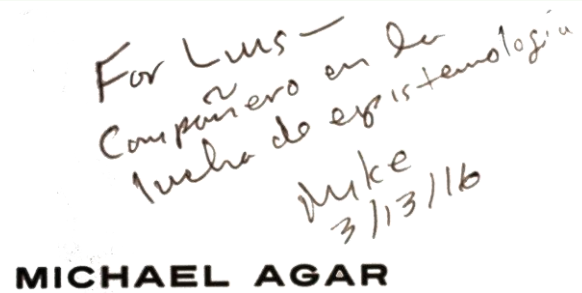 For Luis—
Compañero en la
lucha de epistemologia
Mike
3/13/16
MICHAEL AGAR